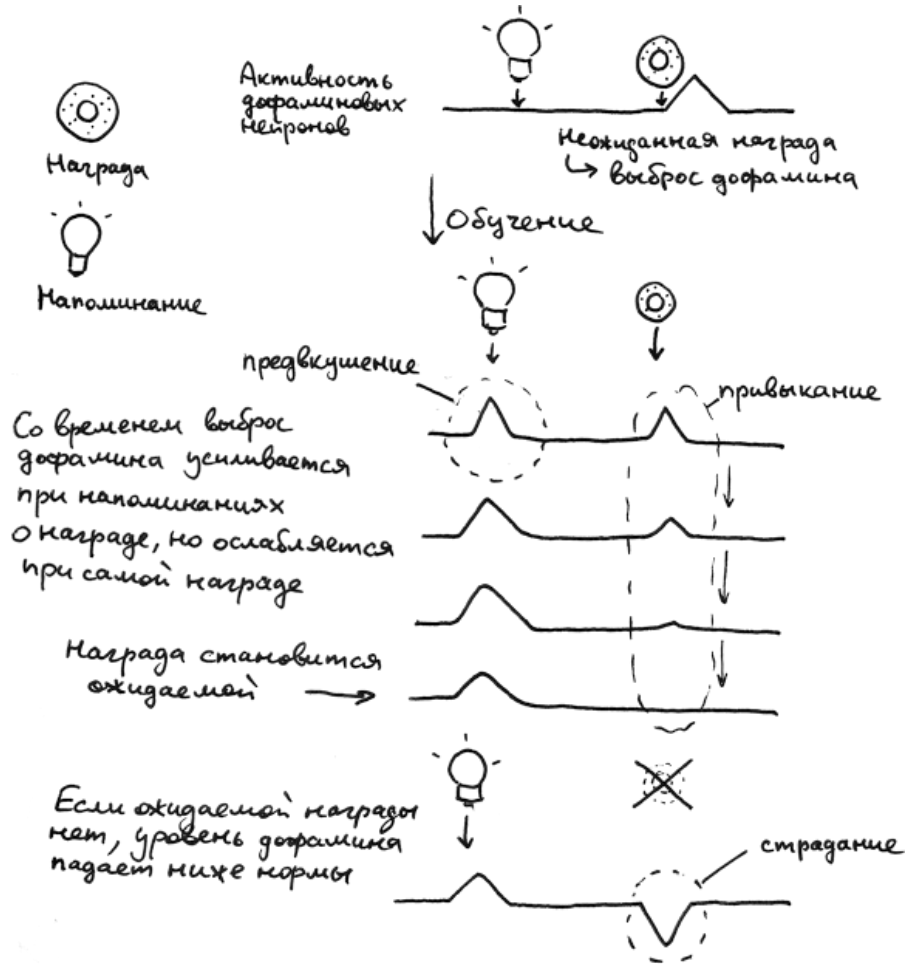 Активность
дофаминовых
нейронов
Награда
Неожиданная награда
выброс дофамина
Обучение
Напоминание
предвкушение
привыкание
Со временем выброс
дофамина усиливается
при напоминаниях
о награде, но ослабляется
при самой награде
Награда становится
ожидаемой
Если ожидаемой награды
нет, уровень дофамина
падает ниже нормы
страдание